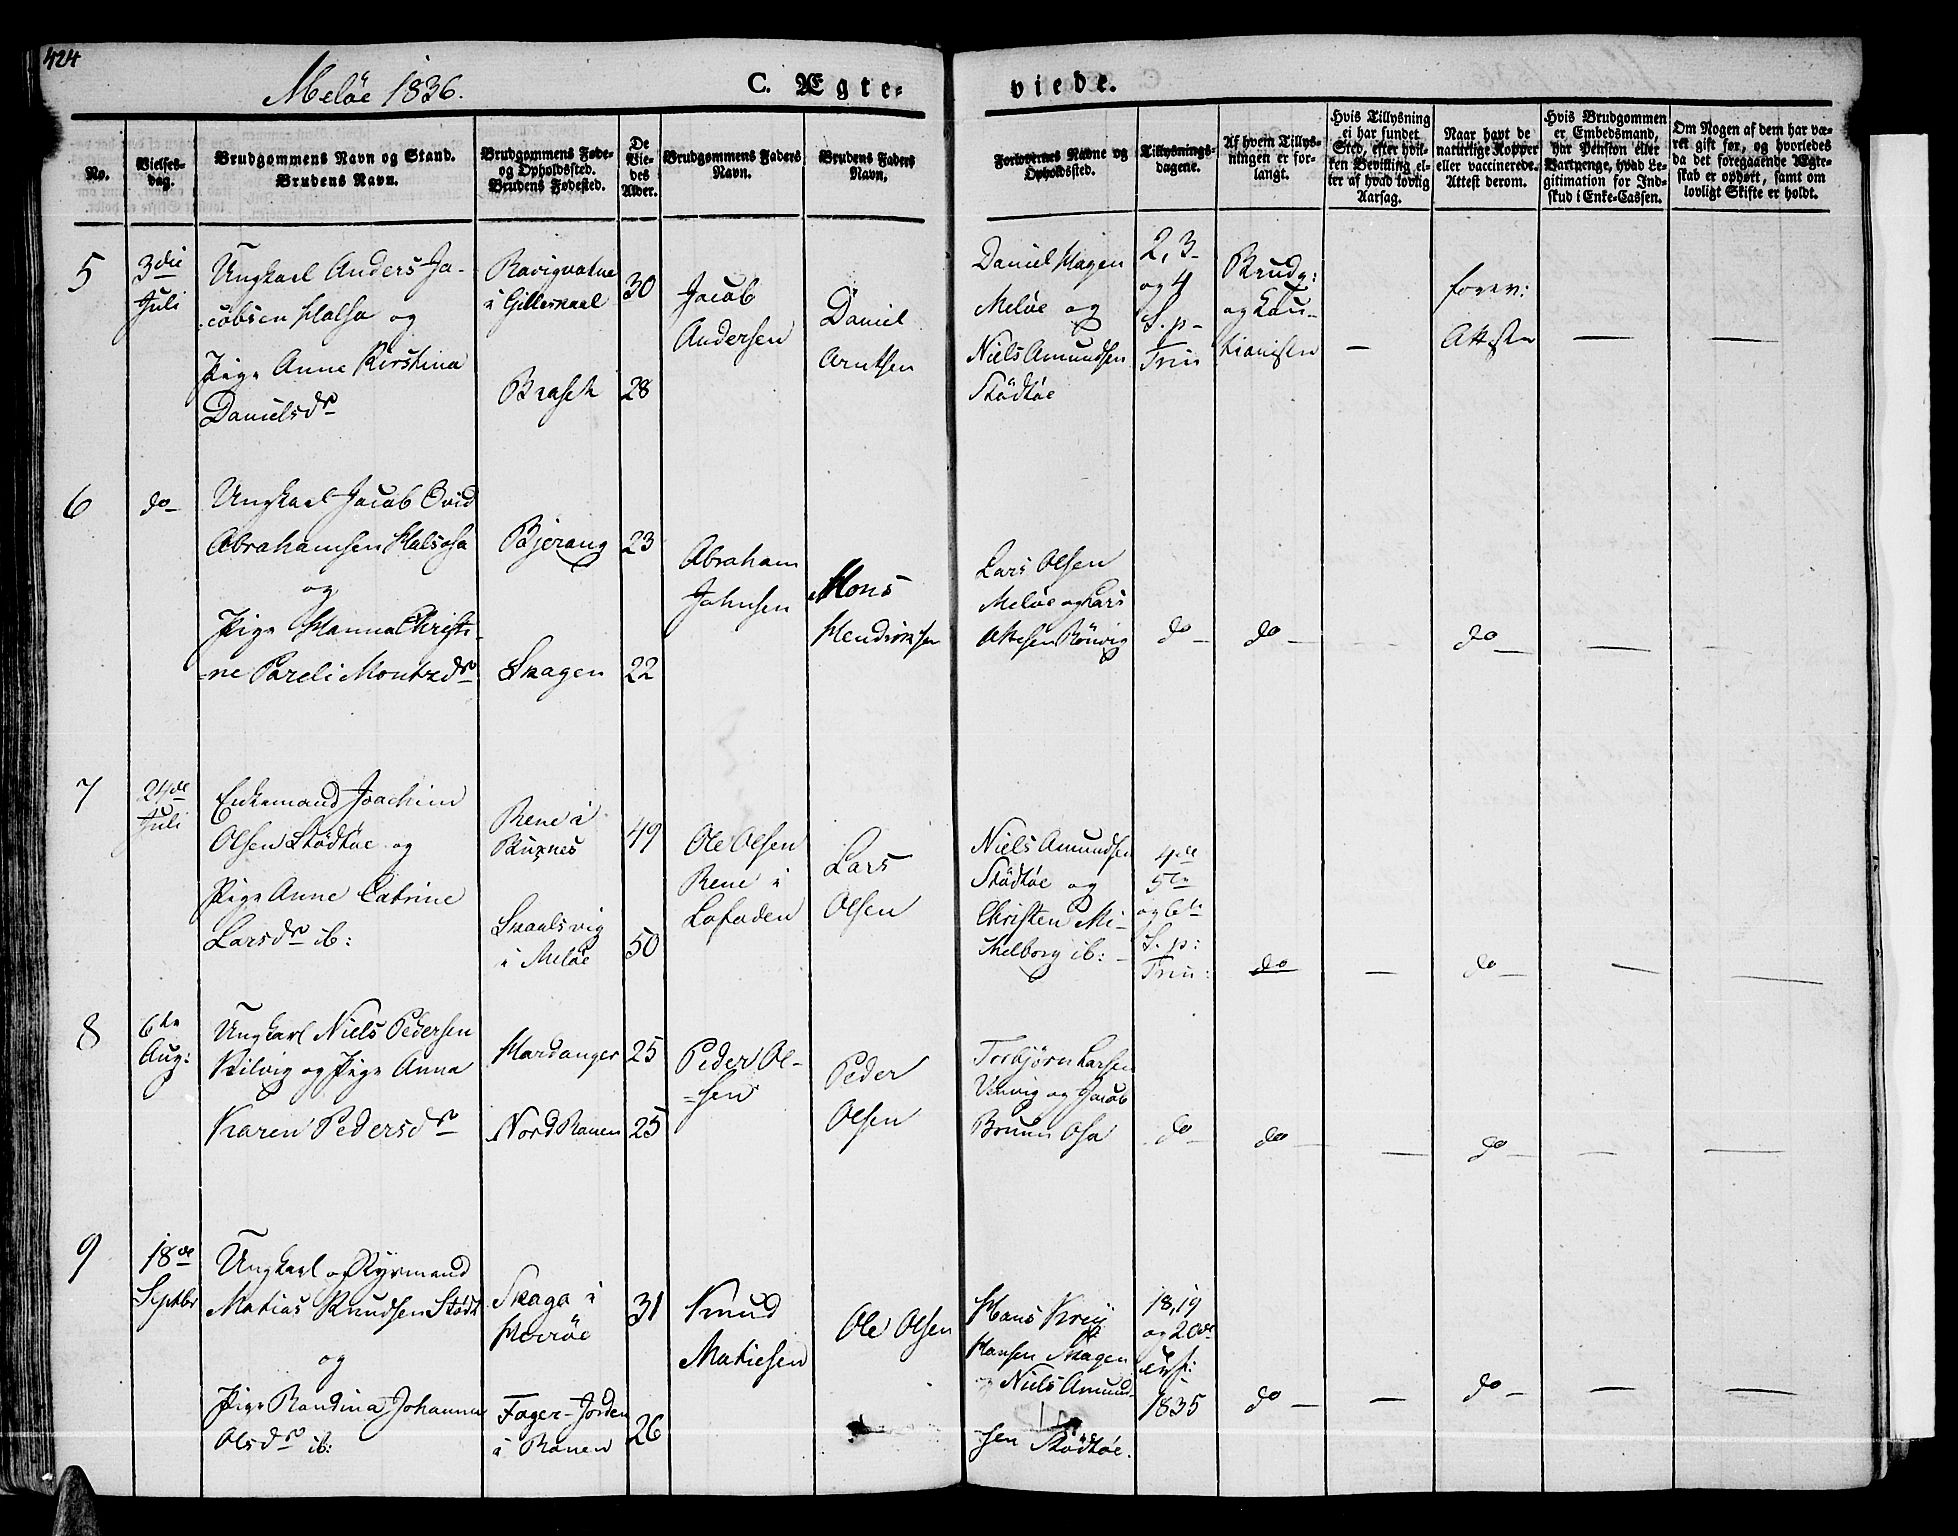 424
Meløe 1836.
C. Ægte-
viede.
No.
Vielses-
dag.
Brudgommens Navn og Stand.
Brudens Navn.
Brudgommens Føde-
og Opholdssted.
Brudens Fødested.
De
Vie-
des
Alder.
Brudgommens Faders
Navn.
Brudens Faders
Navn.
Forlovernes Navne og
Opholdssted.
Tillysnings-
dagene.
Af hvem Tillys-
ningen er for-
langt.
Hvis Tillysning
ei har fundet
Sted, efter hvil-
ken Bevilling el-
ler af hvad lovlig
Aarsag.
Naar havt de
naturlige Kopper
eller vaccinerede.
Attest derom.
Hvis Brudgommen
er Embedsmand,
har Pension eller
Vartpenge, hvad Le-
gitimation for Ind-
skud i Enke-Cassen.
Om Nogen af dem har væ-
ret gift før, og hvorledes
da det foregaaende Ægte-
skab er ophørt, samt om
lovligt Skifte er holdt.
5
3die
Juli
Ungkarl Anders Ja-
cobsen Halsa og
Pige Anne Kirstina
Danielsdr
i Gilleskaal
30
28
Jacob
Andersen
Daniel
Arntsen
Daniel Hagen
Meløe og
Niels Amundsen
Stødtøe
2, 3
og 4
S. p
Trin
Brudg:
og Cau-
tionisten
—
forev:
Attester
—
—
6
do
Ungkarl Jacob Ovid
Abrahamsen Halsosa
og
Pige Hanna Christi-
ne Pareli Montzdr
Bjerang
Skagen
23
22
Abraham
Johnsen
Mons
Hendriksen
Lars Olsen
Meløe og Lars
Rönvig
do
do
—
do
—
—
7
24de
Juli
Enkemand Joachim
Olsen Stødtøe og
Pige Anne Catrine
Larsdr ib:
Rene i
Buxnes
Skaalsvig
i Meløe
49
50
Ole Olsen
Rene i
Lofoden
Lars
Olsen
Niels Amundsen
Stødtøe og
Christen Mi-
kelborg ib:
4de
5te
og 6te
S. p:
Trin:
do
—
do
—
—
8
6te
Aug:
Ungkarl Niels Pedersen
Kilvig og Pige Anna
Karen Pedersdr
Hardanger
Nord Ranen
25
25
Peder Ol-
sen
Peder
Olsen
Torbjørn Larsen
og Jacob
Bruun Osa
do
do
—
do
—
—
9
18de
Septbr
Ungkarl og Styrmand
Matias Knudsen Stødt
og
Pige Randina Johanna
Olsdr ib:
Skaga i
Herrøe
Fager-Jorden
i Ranen
31
26
Knud
Matiesen
Ole Olsen
Hans
Hansen Skagen
og Niels Amund-
sen Stødtøe.
18, 19
og 20de
1835
do
—
do
—
—